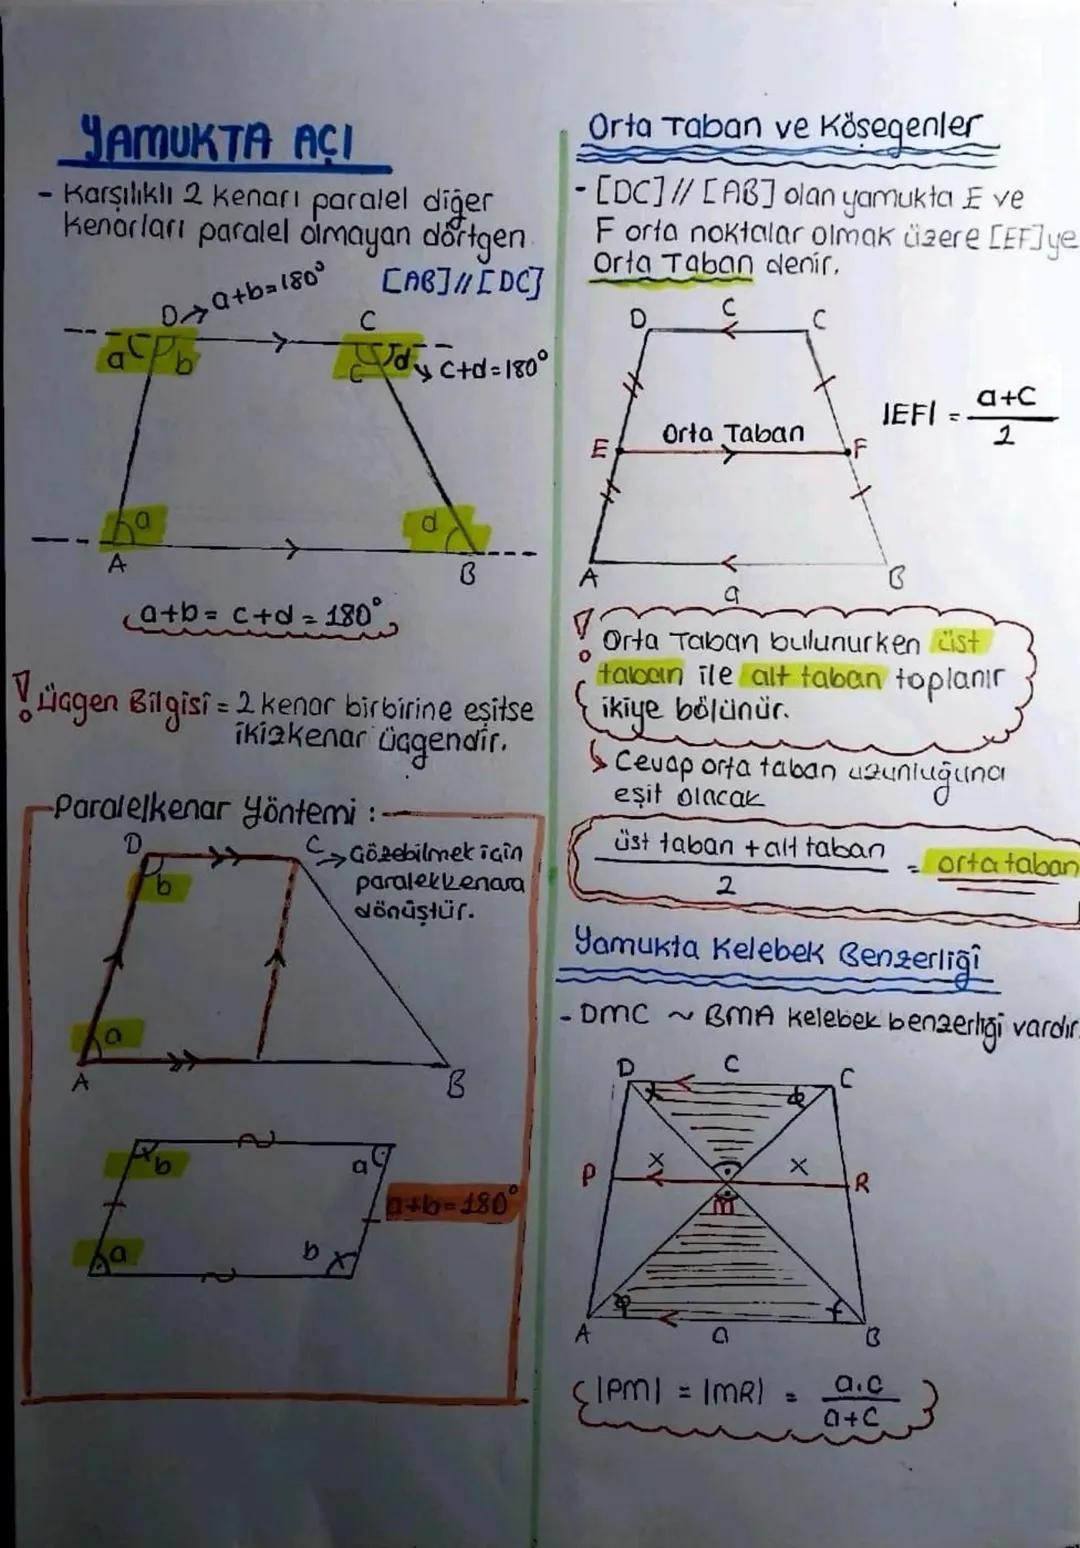 YAMUKTA AÇI
- Karşılıklı 2 kenarı paralel diğer
kenarları paralel olmayan dörtgen.
[AB]//[DC]
D→a+b=180°
C
a b
c d → c+d=180°
a
d
A
B
a+b = c+d = 180°
! Üçgen Bilgisi = 2 kenar birbirine eşitse
ikizkenar üçgendir.
Paralelkenar Yöntemi :
D
C → Çözebilmek için
paralelkenara
dönüştür.
b
a
A
B
b
a
a+b=180°
a
b
Orta Taban ve Köşegenler
- [DC] // [AB] olan yamukta E ve
F orta noktalar olmak üzere [EF]ye
Orta Taban denir.
D
c
C
|EF| = a+c
2
E
Orta Taban
F
A
a
B
! Orta Taban bulunurken üst
taban ile alt taban toplanır
ikiye bölünür.
↳ Cevap orta taban uzunluğuna
eşit olacak
üst taban + alt taban
2
= orta taban
Yamukta Kelebek Benzerliği
- DMC ~ BMA kelebek benzerliği vardır.
D
c
C
P
x
x
R
m
A
a
B
|PM| = |MR| = a.c
a+c